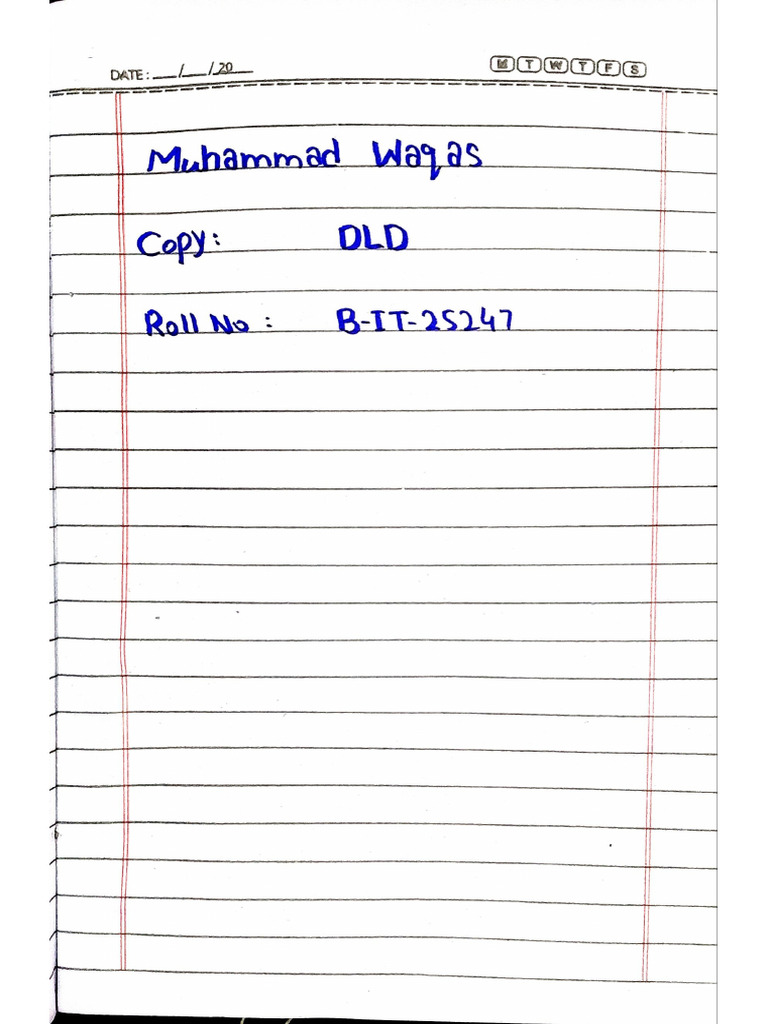 DATE: __/__/20__ M T W T F S
Muhammad Waqas
Copy: DLD
Roll No : B-IT-25247